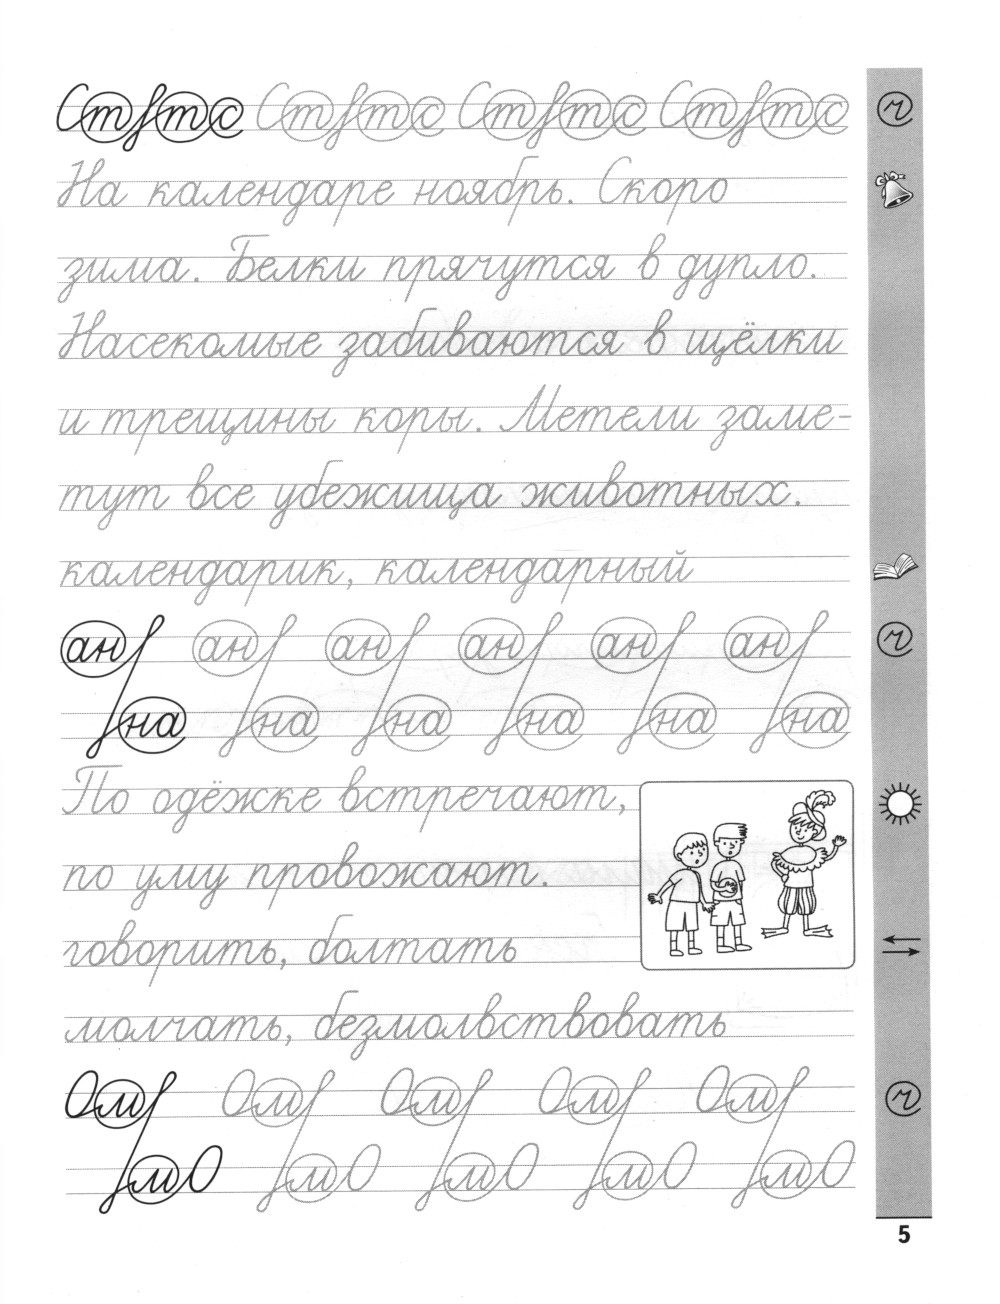 Ст тс Ст тс Ст тс Ст тс
На календаре ноябрь. Скоро
зима. Белки прячутся в дупло.
Насекомые забиваются в щёлки
и трещины коры. Метели заме-
тут все убежища животных.
календарик, календарный
ан ан ан ан ан ан
на на на на на на
По одёжке встречают,
по уму провожают.
говорить, болтать
молчать, безмолвствовать
Ом Ом Ом Ом Ом
мО мО мО мО мО
5